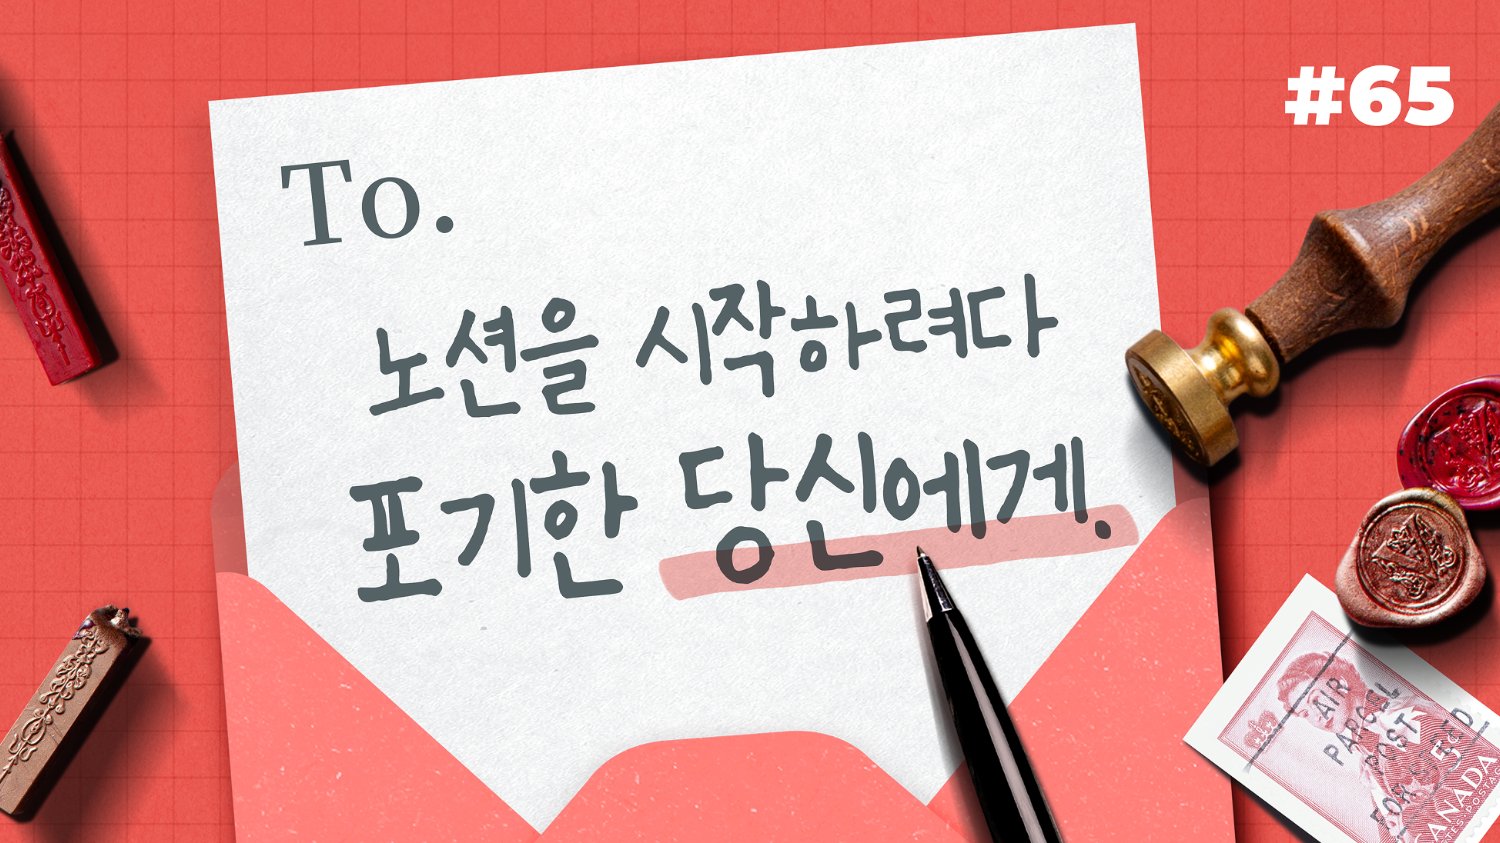 #65
To.
노션을 시작하려다
포기한 당신에게.
AIR
PARCEL
POST
5
CANADA